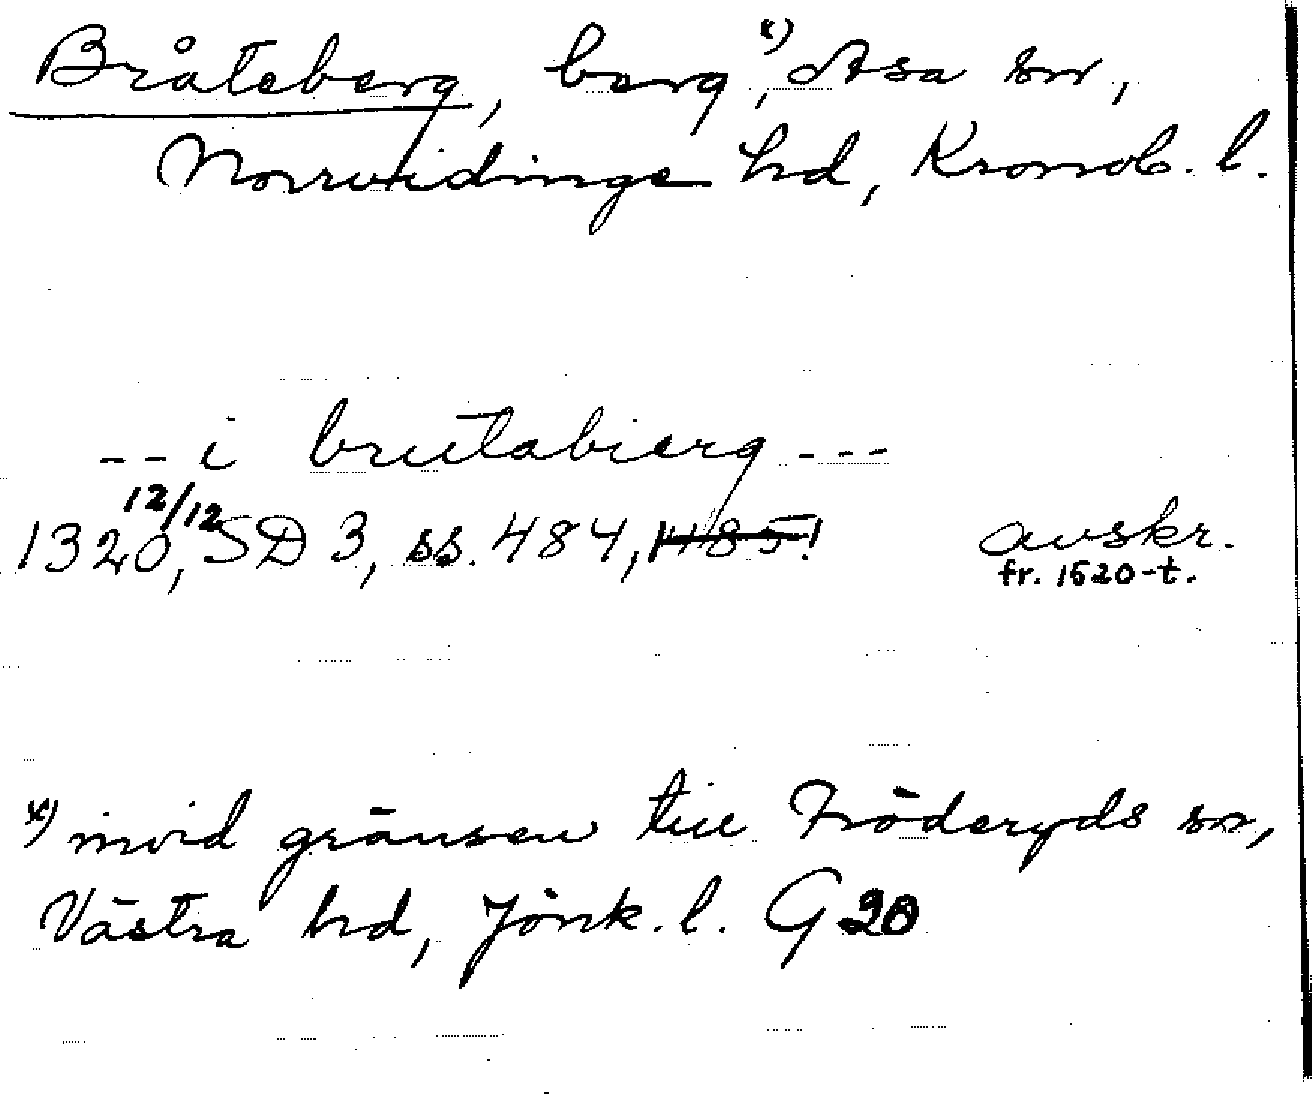 Bråteberg, berg x), Asa sn,
Norrvidinge hd, Kronob. l.
-- i brutabierg ---
1320 12/12, SD 3, ss. 484, 485! avskr.
fr. 1520-t.
x) invid gränsen till Fröderyds sn,
Västra hd, Jönk. l. G 20